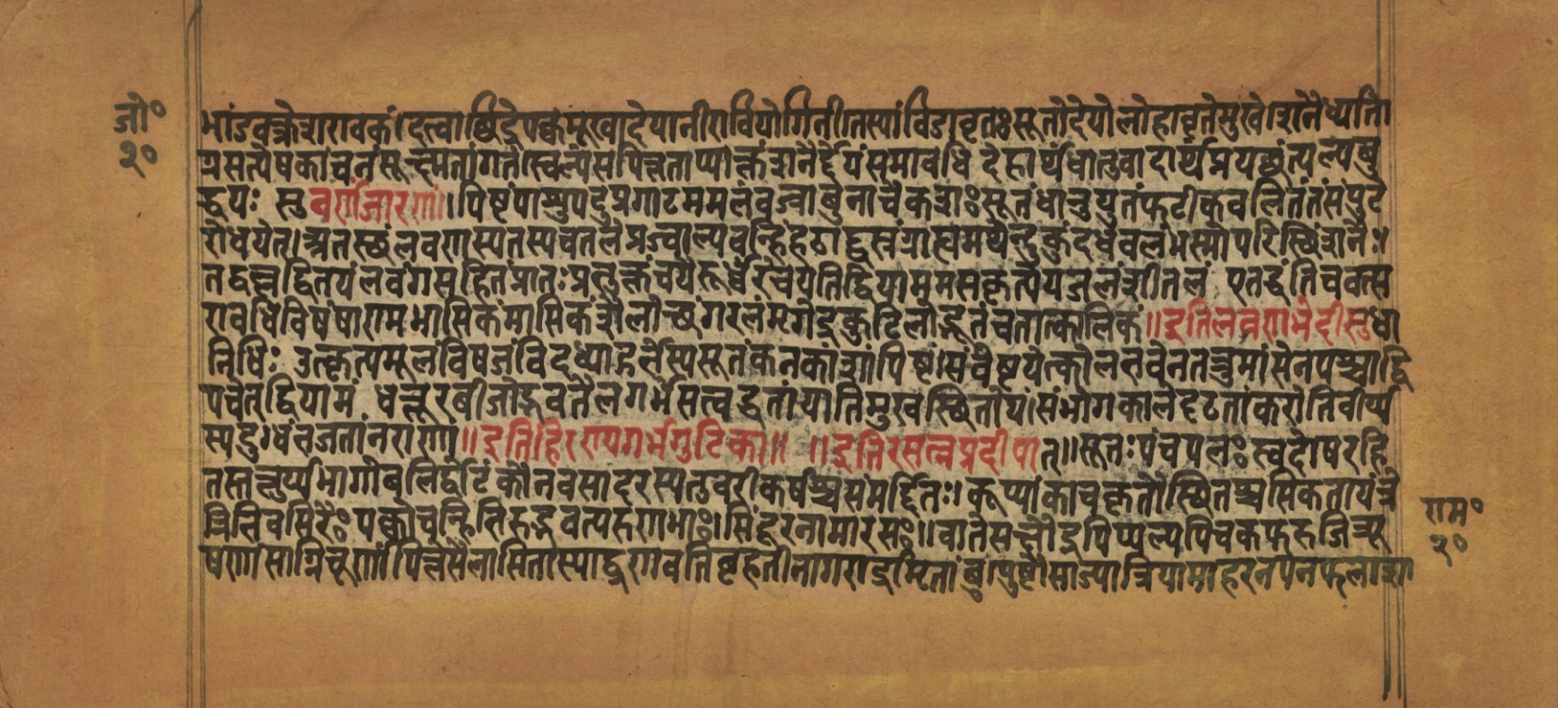 जो॰
२०
भांडवक्त्रेशरावकं।दत्वाष्टिद्रेपक्वमूखादेयानीराविर्योगिनी।तस्यांविडावृतःसूतोदेयोलोहावृतेमुखे।शनैर्ध्माति
ग्रसत्येषकांचनंसूक्ष्मतांगतं।स्वल्पंसपित्तताप्याक्तंशनैर्द्देयंसमावधि देहार्थंधातुवादार्थंप्रयच्छंत्यल्पबु
द्धयः सुवर्णजारणं।।पिष्टंपांशुपटुप्रगाढममलंवज्र्यांबुनाचैकशःसूतंधातुयुतंफटीकवलितंतंसंपुटे
रोधयेत्।अंतस्थंलवणस्यतस्यचतलेप्रज्वाल्यवन्हिंहठाद्घस्रंग्राह्यमथेन्दुकुंदधवलंभस्मोपरिस्थिंशनैः।
तद्वल्लद्वितयंलवंगसहितंप्रातःप्रभुक्तंचयैरूर्ध्वंरेचयतिद्वियाममसकृत्पेयंजलंशीतलं एतद्धंतिचवत्स
रावधिविषंषाण्मासिकंमासिकंशैलोच्छंगरलंमृगेंद्रकुटिलोद्भूतंचतात्कालिकं॥इतिलवणभेदीसुधा
निधिः उत्कृत्यमूलंविषजंविदध्याद्गर्तेस्यसूतंकनकांशपिष्टं।संवेष्टयेत्कौलभवेनतच्चमांसेनपश्चाद्धि
पचेत्द्वियामं धत्तूरबीजोद्भवतैलगर्भेसत्वद्रुतांयातिमुखस्थितोयं।संभोगकालेदृढतांकरोतिवीर्य्य
स्यदुग्धंचजतांनराणां॥इतिहिरण्यगर्भगुटिका॥ ॥इतिरसरत्नप्रदीपात्॥सूतःपंचपलःस्वदोषरहि
तस्तत्तुर्य्यभागोबलिर्द्वौटंकौनवसादरस्यतुवरीकर्षश्चसंमर्द्दितः।कूप्यांकाचकृतौस्थितश्चसिकतायंत्रे
त्रिभिर्वासरैःपक्वोवन्हिभिरुद्भवत्यरुणभाः।सिंदूरनामारसः॥वातेसक्षौद्रपिप्पल्यपिचकफरुजित्र्यू
षणंसाग्निचूर्णंपित्तेसैलासितास्याद्व्रणवतिबृहतीनागरार्द्रामृतांबु।पुष्टौसाज्यात्रियामाहरनयनफलाशा
राम॰
२०